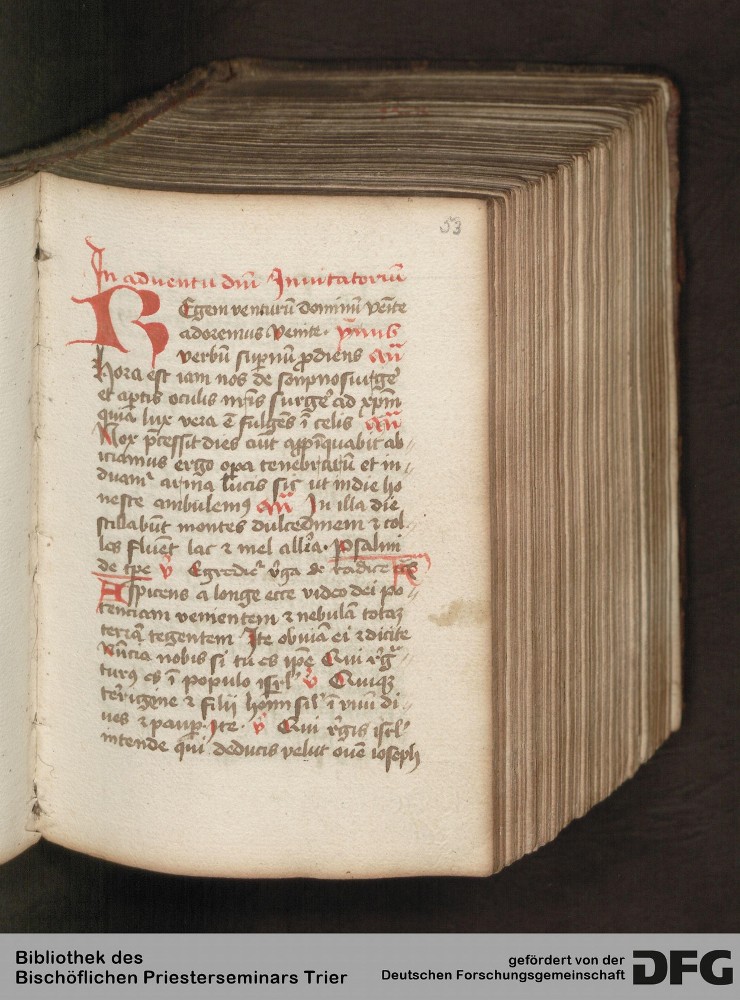 53
In aduentu dnī Inuitatoriū
REgem venturū dominū venite
adoremus Venite. ymnus
verbū supnū prodiens an̄
Hora est iam nos de sompno surge
et aptis oculis nrīs surge ad xpm̄
quia lux vera ē fulgēs ī celis an̄
Nox pcessit dies aut appinquabit ab
iciamus ergo opa tenebrarū et in
duamr arma lucis sic ut in die ho
neste ambulemꝰ an̄ In illa die
stillabūt montes dulcedinem ⁊ col
les fluēt lac ⁊ mel alla. Psalmi
de tpe v̄ Egredietr v̄ga de radice
Aspiciens a longe ecce video dei po
tenciam venientem ⁊ nebulā totaʒ
terrā tegentem Ite obuiā ei ⁊ dicite
Nūcia nobis si tu es ipe Qui
turꝰ es ī populo isrl v̄ Quiqʒ
terigine ⁊ filii hoīm sil ī vnū di
ues ⁊ paup. Ite. v̄ Qui regis isrl
intende qui deducis velut ouē ioseph
Bibliothek des
Bischöflichen Priesterseminars Trier
gefördert von der
Deutschen Forschungsgemeinschaft
DFG